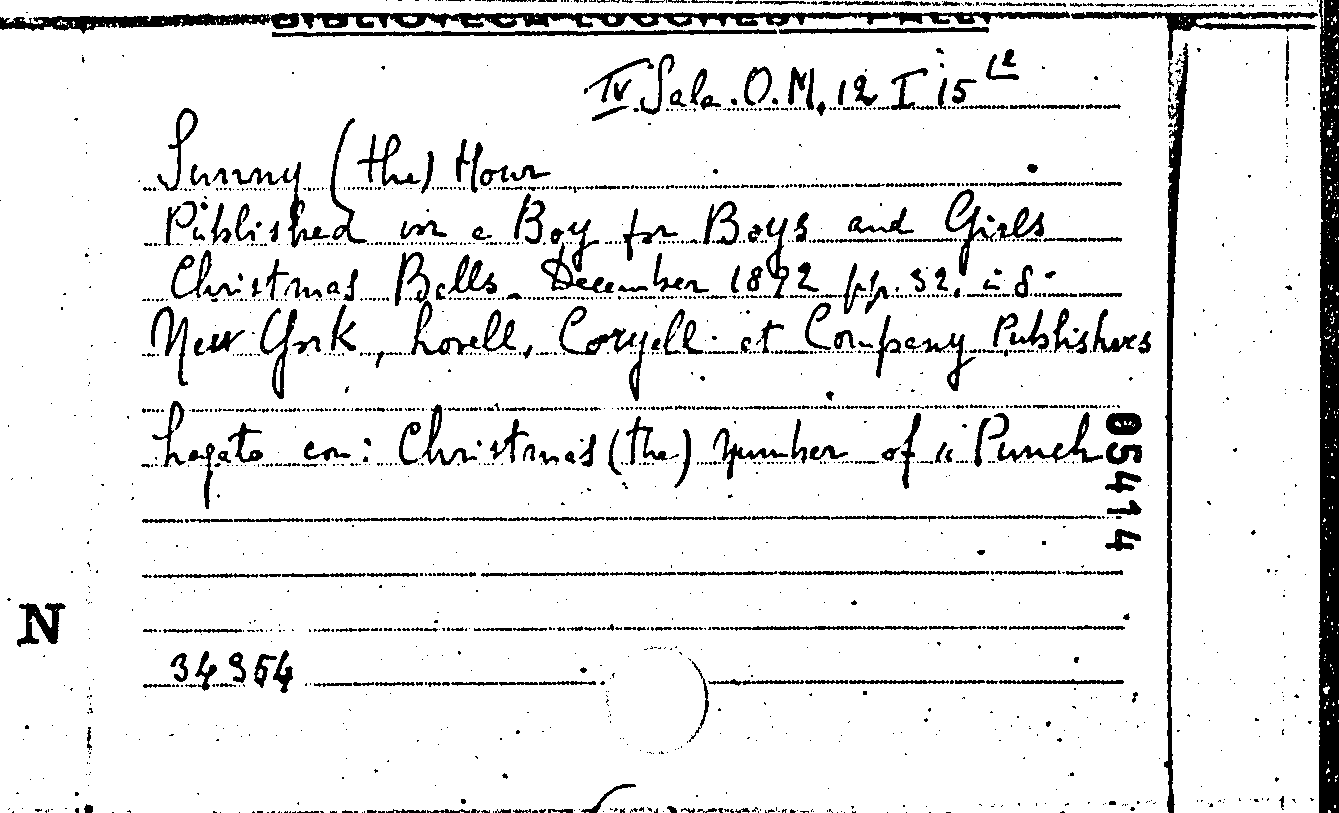 BIBLIOTECA LUCCHESI - PALLI
IV Sala. O.M. 12 I 15 12
Sunny (the) Hour
Published in a Boy for Boys and Girls
Christmas Bells. December 1892 pp. 32. in 8°
New York, Lovell, Coryell et Company Publishers
Legato con: Christmas (the) Number of " Punch
05414
N
34954